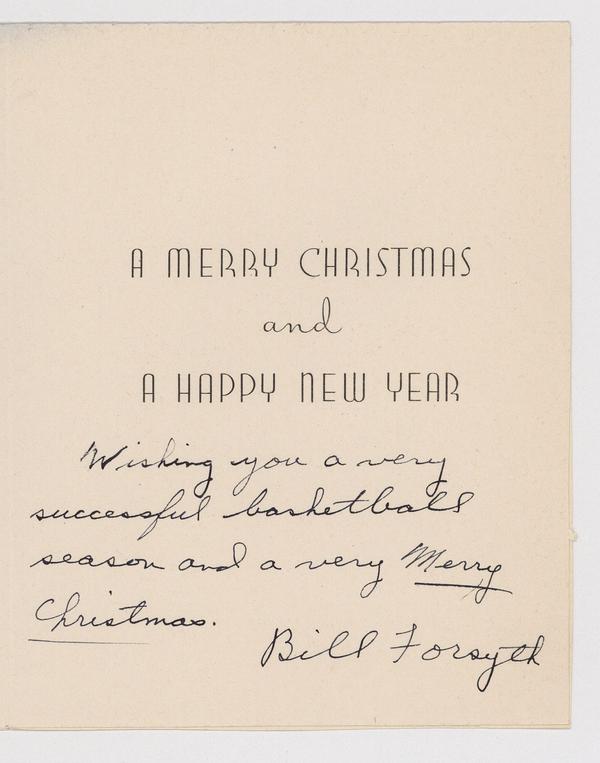 A MERRY CHRISTMAS
and
A HAPPY NEW YEAR
Wishing you a very
successful basketball
season and a very Merry
Christmas.
Bill Forsyth